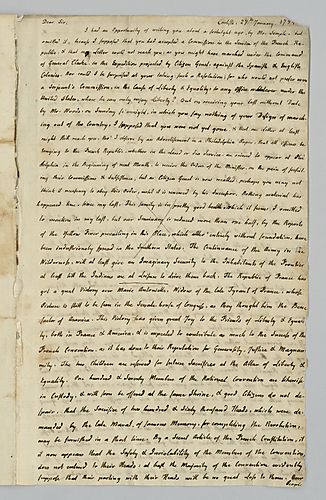 Dear Sir, Carlisle, 27th January, 179
I had an Opportunity of writing you about a fortnight ago, by Mr. Semple, but
omitted it, because I supposed that you had accepted a Commission in the service of the French Re-
public, & that my letter could not reach you, as you might have marched under the Command
of General Clarke, in the Expedition projected by Citizen Genet, against the Spanish & English
Colonies. Nor could I be surprised at your taking such a Resolution; for who would not prefer even
a Serjeant's Commission in the Camp of Liberty & Equality, to any Office whatsoever under the
United States, where he can only enjoy Liberty? But on receiving your last without Date,
by Mr. Woods, on Sunday se'nnight, in which you say nothing of your Design of march-
ing out of the Country, I supposed that you were not yet gone, & that one letter at least
might still reach you. I observe by an Advertisement in a Philadelphia Paper, that all Officers be-
longing to the French Republic, whether on the island or Sea Service, are ordered to appear at Phi-
ladelphia in the Beginning of next Month, to receive the Orders of the Minister, on the pain of forfeit-
ing their Commissions & Subsistence, but as Citizen Genet is now recalled, perhaps you may not
think it necessary to obey this Order, until it is renewed by his Successor. Nothing material has
happened here, since my last. This family is in pretty good health, which it seems, I omitted
to mention in my last, but our Seminary is reduced more than one half, by the Reports
of the Yellow Fever prevailing in this Place, which, altho' entirely without foundation, have
been industriously spread in the Southern States. The Continuance of the Army in the
Wilderness, will at least give an Imaginary Security to the Inhabitants of the Frontiers
at least till the Indians are at leisure to drive them back. The Republic of France has
got a great Victory over Marie Antoinette, Widow of the late Tyrant of France, whose
Picture is still to be seen in the Chamber of Congress, as they thought him the Bene-
factor of America. This Victory has given great Joy to the Friends of Liberty & Equali-
ty, both in France & America, & is expected to contribute as much to the Success of the
French Convention, as it has done to their Reputation for Generosity, Justice & Magnani-
mity. The two Children are reserved for future Sacrifices at the Altar of Liberty &
Equality. One hundred & seventy Members of the National Convention are likewise
in Custody, & will soon be offered at the same Shrine, & good Citizens do not de-
spair, that the Sacrifice of two hundred & sixty thousand Heads, which were de-
manded by the late Marat, of famous Memory, for completing the Revolution,
may be furnished in a short time. By a Secret Article of the French Constitution, it
it now appears that the Safety & Inviolability of the Members of the Convention
does not extend to their Heads; at least the Majority of the Convention evidently
suppose that their parting with their Heads will be no great loss to them.